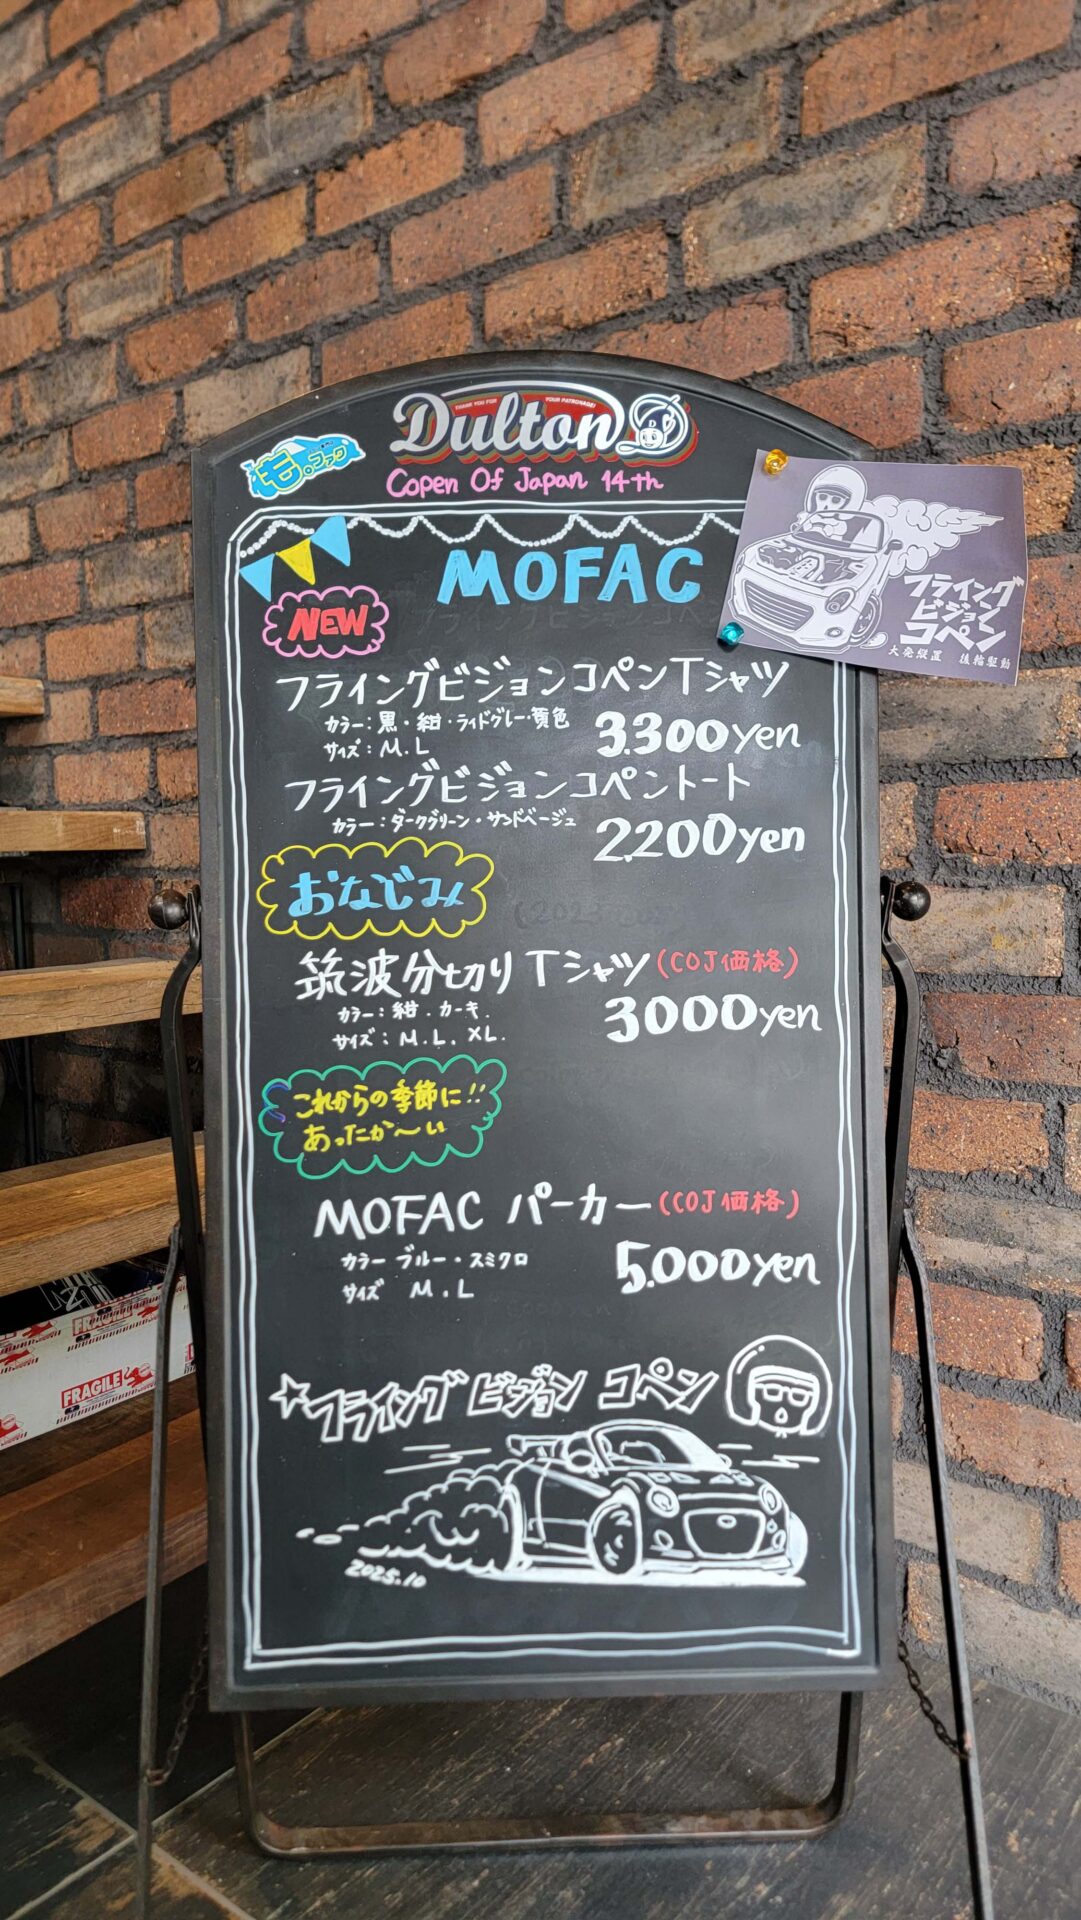 THANK YOU FOR YOUR PATRONAGE!
Dulton
も。ファク
Copen Of Japan 14th
MOFAC
フライング
ビジョン
コペン
大発縦置 後輪駆動
NEW
フライングビジョンコペンTシャツ
カラー:黒・紺・ライドグレー・黄色
サイズ:M.L
3,300yen
フライングビジョンコペントート
カラー:ダークグリーン・サンドベージュ
2,200yen
おなじみ
筑波分切りTシャツ(COJ価格)
カラー:紺.カーキ.
サイズ:M.L.XL.
3000yen
これからの季節に!!
あったか〜い
MOFAC パーカー(COJ価格)
カラー ブルー・スミクロ
サイズ M.L
5,000yen
☆フライング ビジョン コペン
2025.10
FRAGILE
FRAGILE